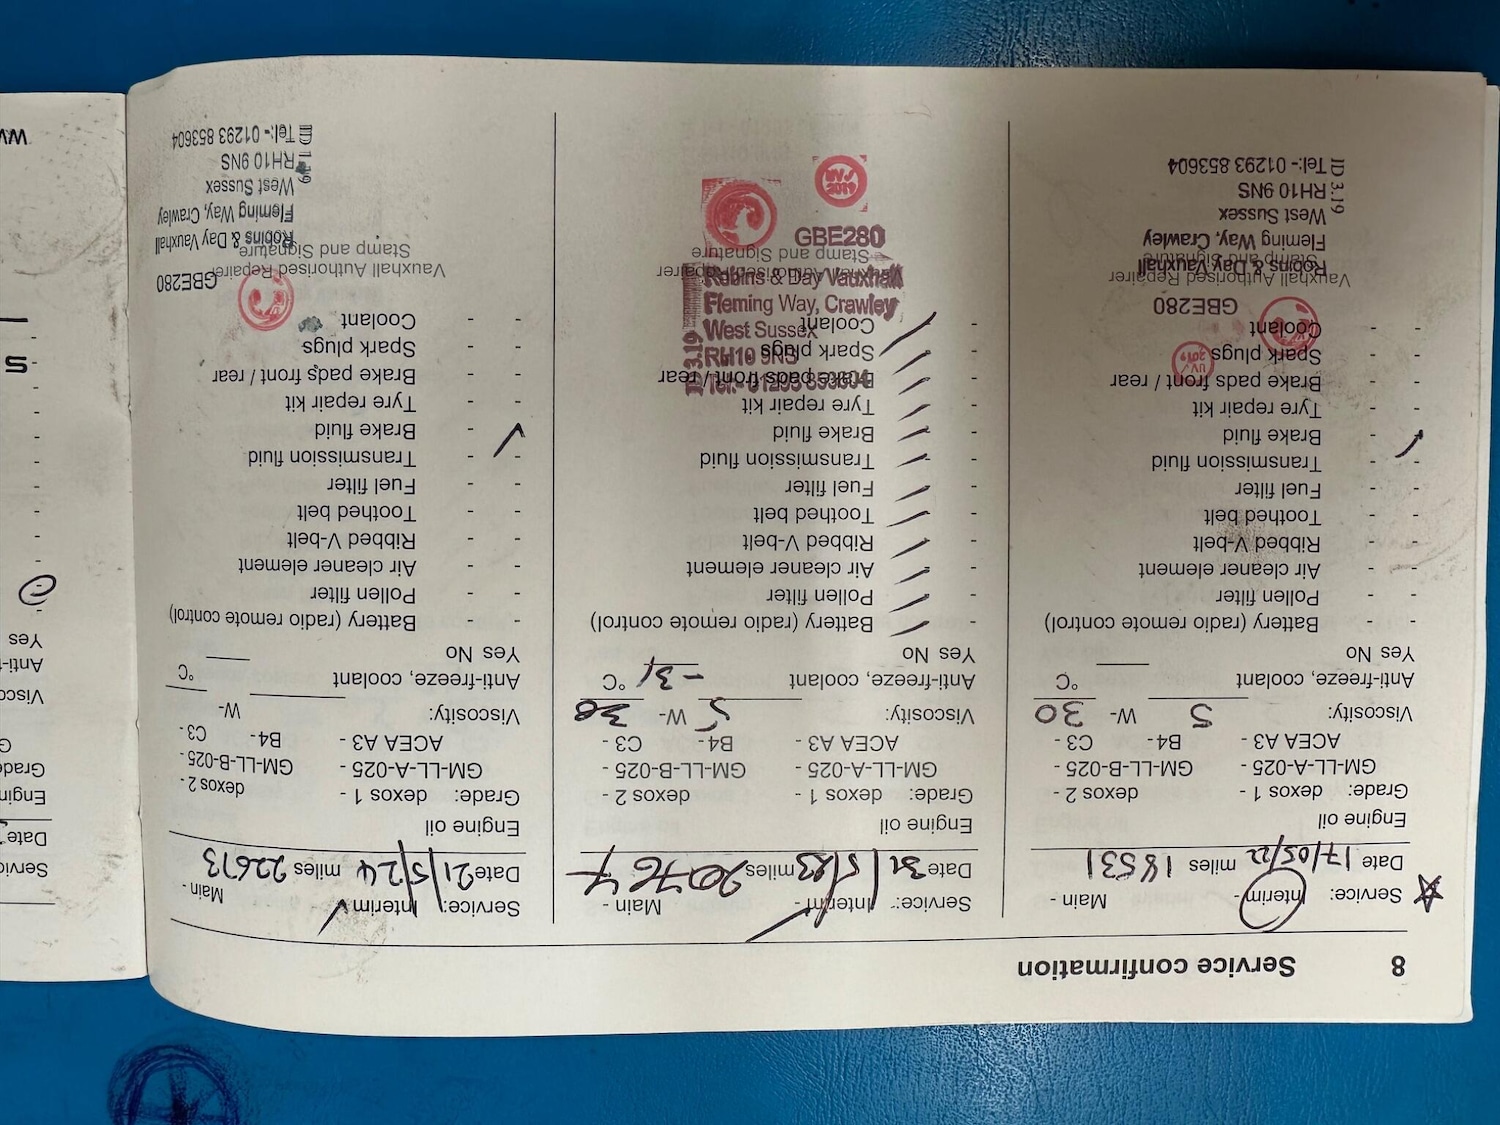 8 Service confirmation
Service: Interim - Main -
Date 17/05/22 miles 18531
Engine oil
Grade: dexos 1 - dexos 2 -
GM-LL-A-025 - GM-LL-B-025 -
ACEA A3 - B4 - C3 -
Viscosity: 5 W- 30
Anti-freeze, coolant °C
Yes No
- - Battery (radio remote control)
- - Pollen filter
- - Air cleaner element
- - Ribbed V-belt
- - Toothed belt
- - Fuel filter
- - Transmission fluid
- - Brake fluid
- - Tyre repair kit
- - Brake pads front / rear
- - Spark plugs
- - Coolant
GBE280
Vauxhall Authorised Repairer
Stamp and Signature
Robins & Day Vauxhall
Fleming Way, Crawley
West Sussex
RH10 9NS
Tel:- 01293 853604
ID 3.19
Service: Interim - Main -
Date 31/5/23 miles 20767
Engine oil
Grade: dexos 1 - dexos 2 -
GM-LL-A-025 - GM-LL-B-025 -
ACEA A3 - B4 - C3 -
Viscosity: 5 W- 30
Anti-freeze, coolant -31 °C
Yes No
- Battery (radio remote control)
- Pollen filter
- Air cleaner element
- Ribbed V-belt
- Toothed belt
- Fuel filter
- Transmission fluid
- Brake fluid
- Tyre repair kit
- Brake pads front / rear
- Spark plugs
- Coolant
Vauxhall Authorised Repairer
Stamp and Signature
GBE280
Robins & Day Vauxhall
Fleming Way, Crawley
West Sussex
RH10 9NS
Tel:- 01293 853604
ID 3.19
Service: Interim - Main -
Date 21/5/24 miles 22673
Engine oil
Grade: dexos 1 - dexos 2 -
GM-LL-A-025 - GM-LL-B-025 -
ACEA A3 - B4 - C3 -
Viscosity: W-
Anti-freeze, coolant °C
Yes No
- - Battery (radio remote control)
- - Pollen filter
- - Air cleaner element
- - Ribbed V-belt
- - Toothed belt
- - Fuel filter
- - Transmission fluid
- - Brake fluid
- - Tyre repair kit
- - Brake pads front / rear
- - Spark plugs
- - Coolant
GBE280
Vauxhall Authorised Repairer
Stamp and Signature
Robins & Day Vauxhall
Fleming Way, Crawley
West Sussex
RH10 9NS
Tel:- 01293 853604
Date
Grade
Yes